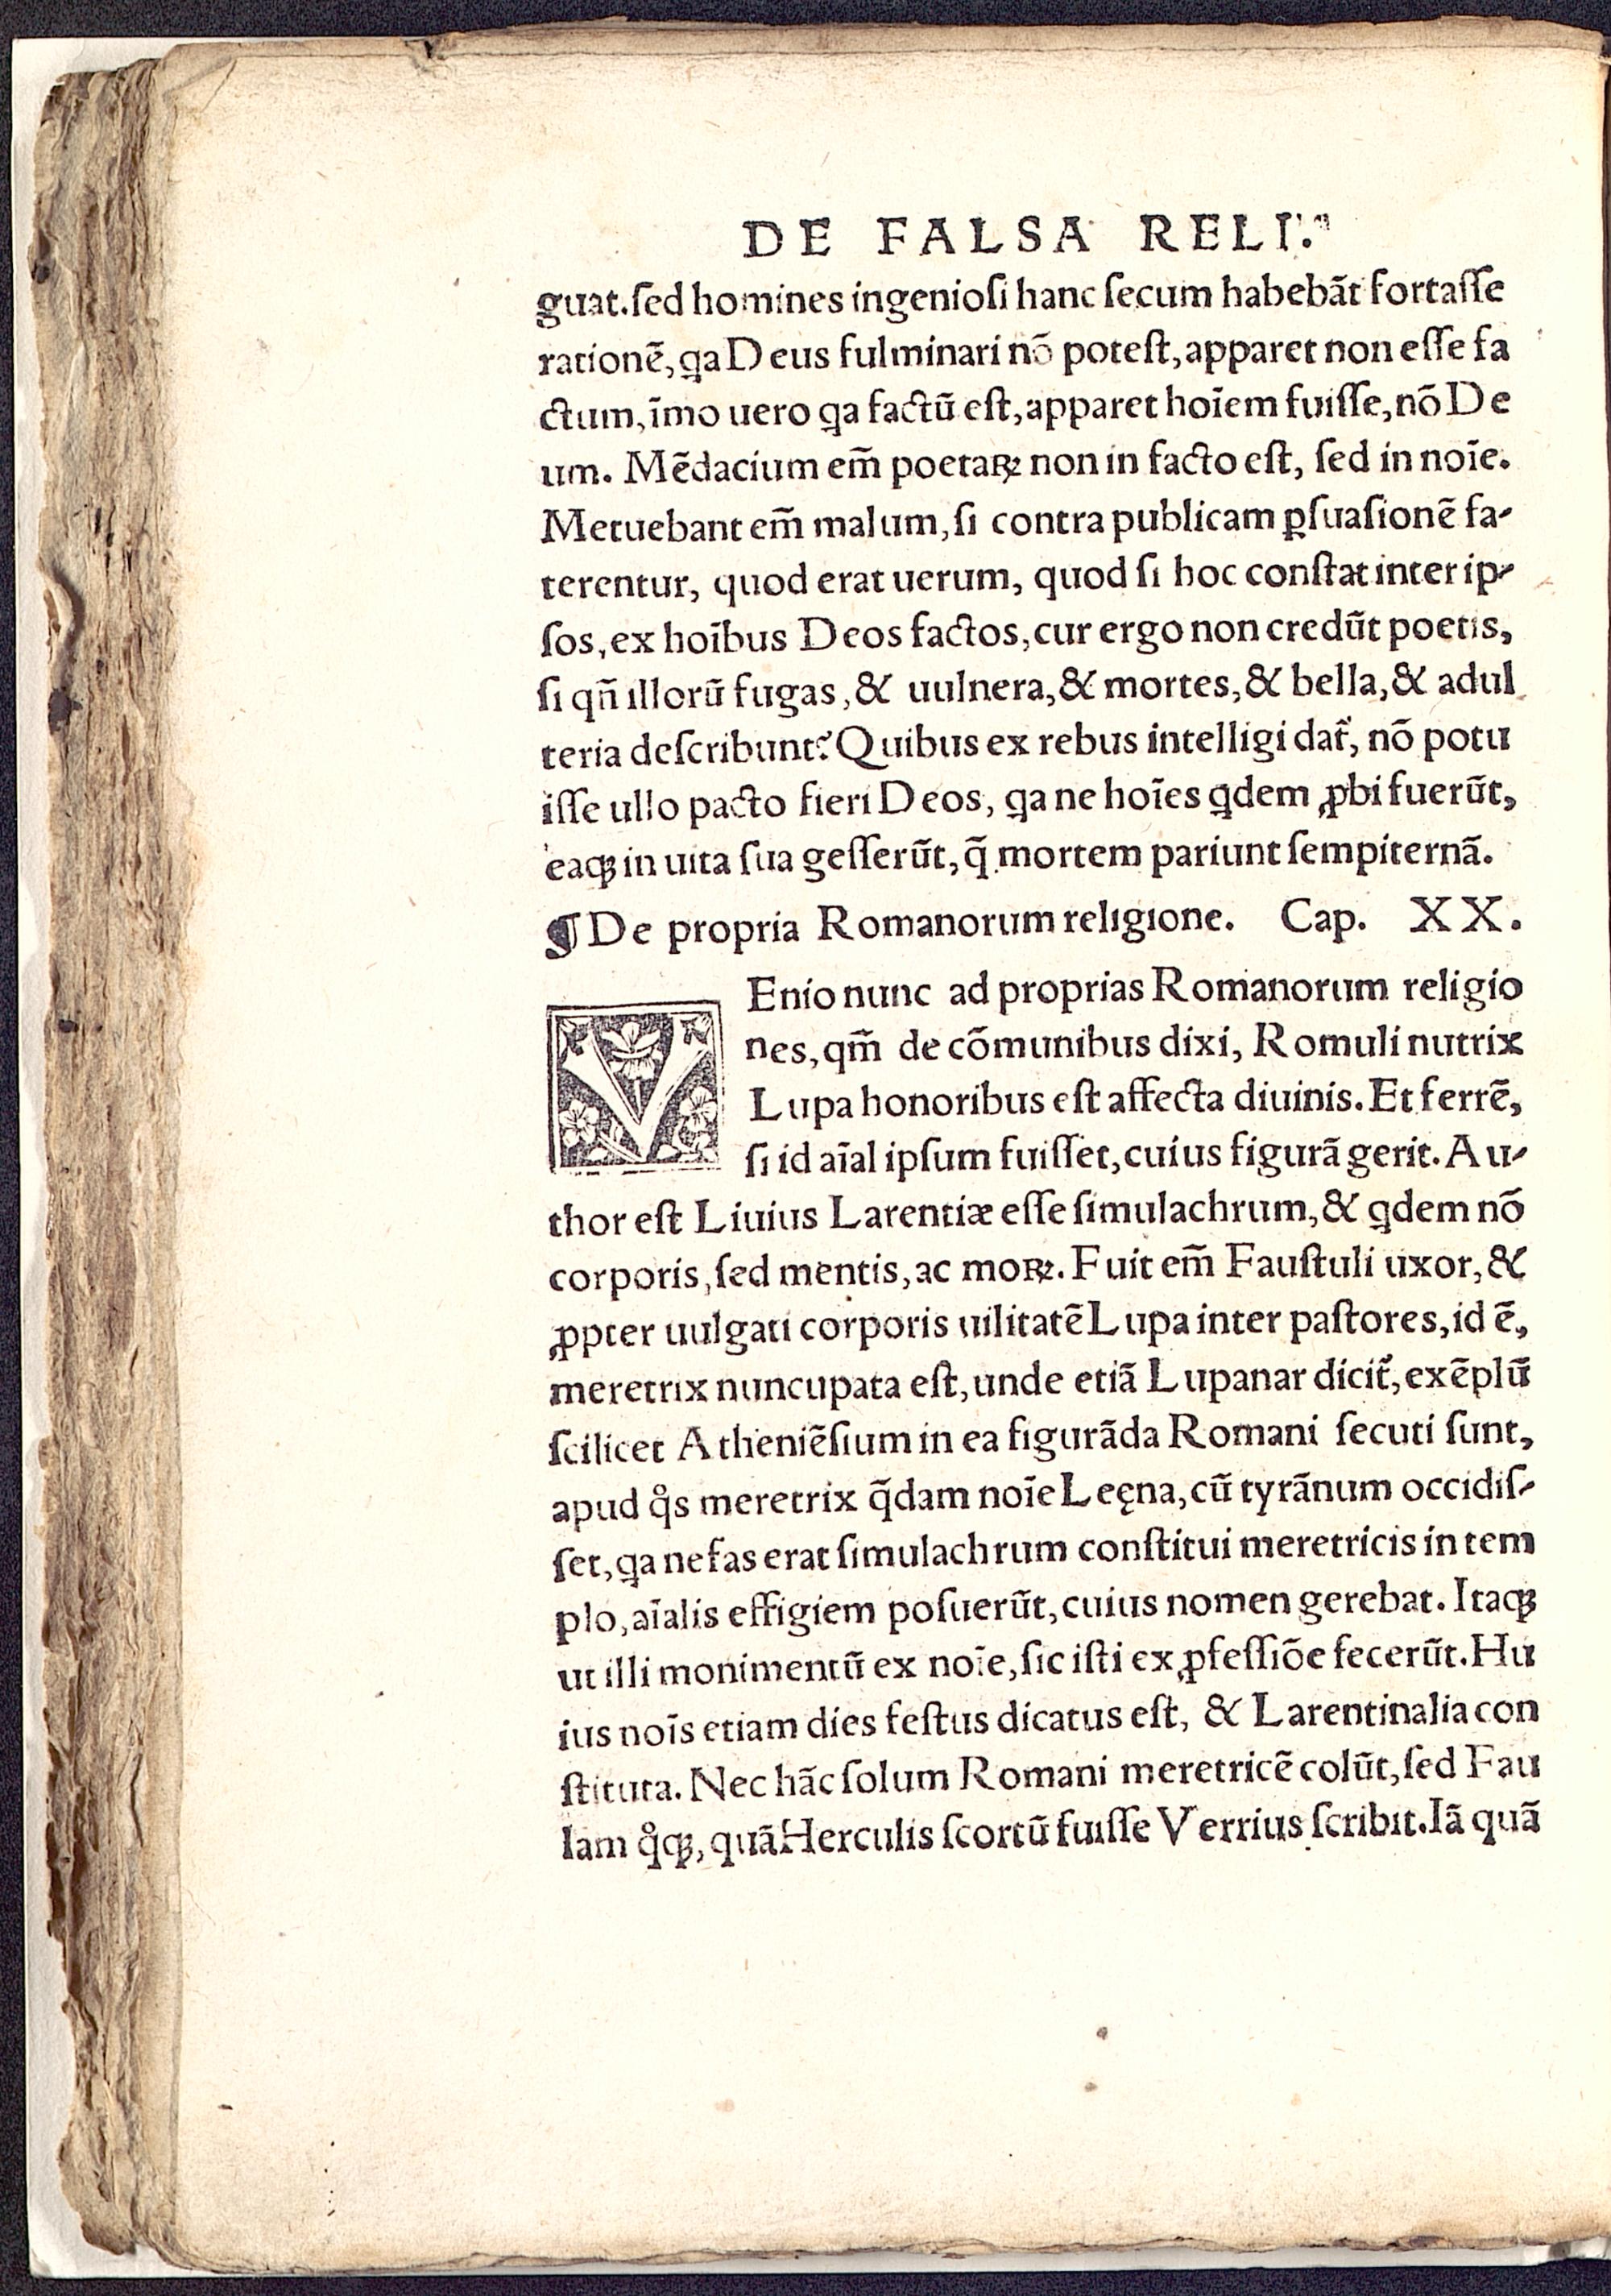 DE FALSA RELI.
guat.ſed homines ingenioſi hanc ſecum habebãt fortaſſe
rationẽ, ꝗa Deus fulminari nõ poteſt, apparet non eſſe fa
ctum, ĩmo uero ꝗa factũ eſt, apparet hoĩem fuiſſe, nõ De
um. Mẽdacium em̃ poetaꝝ non in facto eſt, ſed in noĩe.
Metuebant em̃ malum, ſi contra publicam ꝑſuaſionẽ fa-
terentur, quod erat uerum, quod ſi hoc conſtat inter ip-
ſos, ex hoĩbus Deos factos, cur ergo non credũt poetis,
ſi qñ illorũ fugas, & uulnera, & mortes, & bella, & adul
teria deſcribunt? Quibus ex rebus intelligi dat̃, nõ potu
iſſe ullo pacto fieri Deos, ꝗa ne hoĩes ꝗdem ꝓbi fuerũt,
eaqꝫ in uita ſua geſſerũt, q̃ mortem pariunt ſempiternã.
¶ De propria Romanorum religione. Cap. XX.
VEnio nunc ad proprias Romanorum religio
nes, qm̃ de cõmunibus dixi, Romuli nutrix
Lupa honoribus eſt affecta diuinis. Et ferrẽ,
ſi id aĩal ipſum fuiſſet, cuius figurã gerit. Au-
thor eſt Liuius Larentiæ eſſe ſimulachrum, & ꝗdem nõ
corporis, ſed mentis, ac moꝝ. Fuit em̃ Fauſtuli uxor, &
ꝓpter uulgati corporis uilitatẽ Lupa inter paſtores, id ẽ,
meretrix nuncupata eſt, unde etiã Lupanar dicit̃, exẽplũ
ſcilicet Atheniẽſium in ea figurãda Romani ſecuti ſunt,
apud q̊s meretrix q̃dam noĩe Leęna, cũ tyrãnum occidiſ-
ſet, ꝗa nefas erat ſimulachrum conſtitui meretricis in tem
plo, aĩalis effigiem poſuerũt, cuius nomen gerebat. Itaqꝫ
ut illi monimentũ ex noĩe, ſic iſti ex ꝓfeſſiõe fecerũt. Hu
ius noĩs etiam dies feſtus dicatus eſt, & Larentinalia con
ſtituta. Nec hãc ſolum Romani meretricẽ colũt, ſed Fau
lam q̊qꝫ, quã Herculis ſcortũ fuiſſe Verrius ſcribit. Iã quã